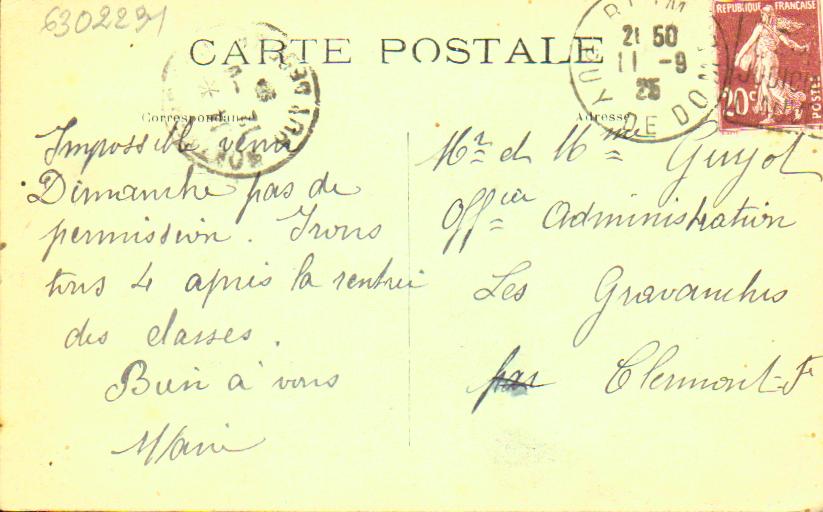 6302291
CARTE POSTALE
Correspondance
Impossible venir
Dimanche pas de
permission. Irons
tous 4 après la rentrée
des classes.
Bien à vous
Marie
Adresse
Mr et Mme Guyot
Officier Administration
Les Gravanches
par Clermont-Fd
REPUBLIQUE FRANÇAISE
20c
POSTES
21 50
11 - 9
25
PUY-DE-DOME